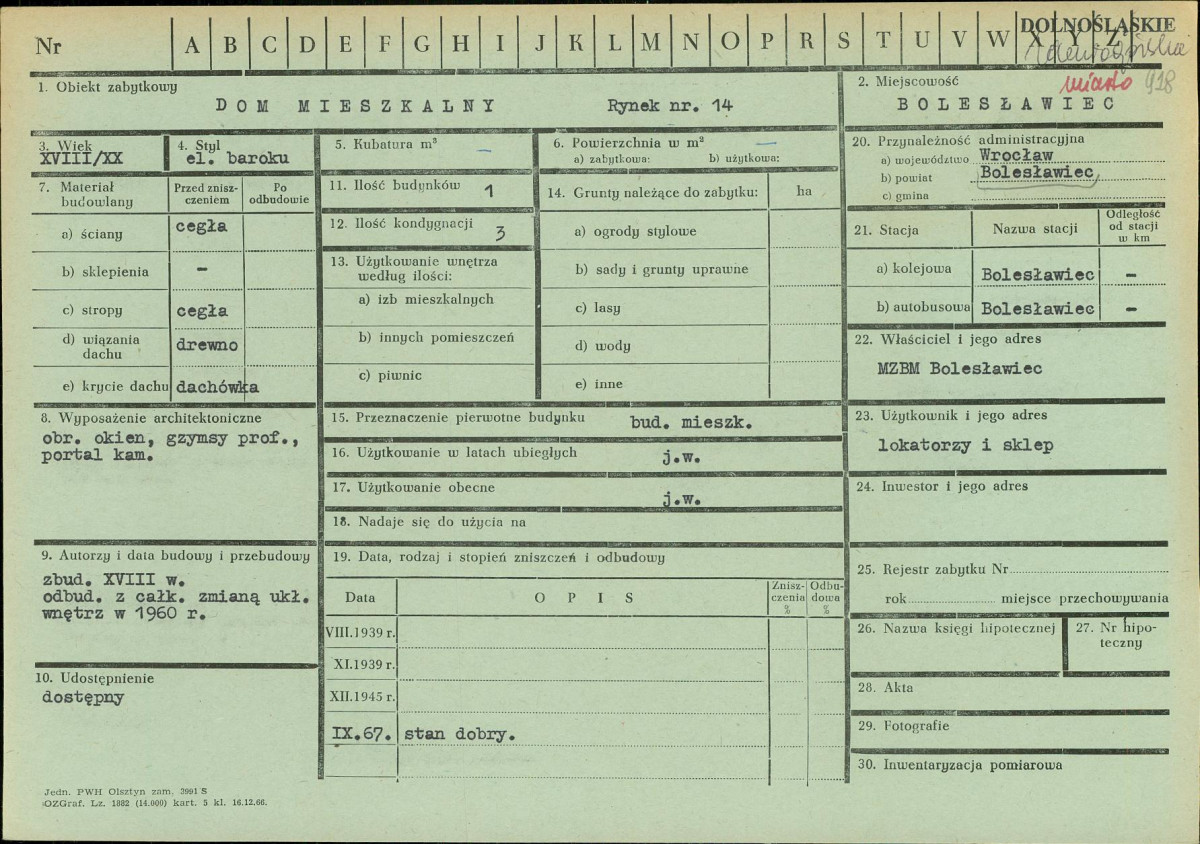 Nr A B C D E F G H I J K L M N O P R S T U V W X Y Z
DOLNOŚLĄSKIE
miasto 918
1. Obiekt zabytkowy
DOM MIESZKALNY Rynek nr. 14
2. Miejscowość
BOLESŁAWIEC
3. Wiek
XVIII/XX
4. Styl
el. baroku
5. Kubatura m³ —
6. Powierzchnia w m² —
a) zabytkowa: b) użytkowa:
20. Przynależność administracyjna
a) województwo Wrocław
b) powiat Bolesławiec
c) gmina
7. Materiał budowlany
Przed znisz-
czeniem
Po
odbudowie
a) ściany cegła
b) sklepienia –
c) stropy cegła
d) wiązania
dachu drewno
e) krycie dachu dachówka
11. Ilość budynków 1
12. Ilość kondygnacji 3
13. Użytkowanie wnętrza
według ilości:
a) izb mieszkalnych
b) innych pomieszczeń
c) piwnic
14. Grunty należące do zabytku: ha
a) ogrody stylowe
b) sady i grunty uprawne
c) lasy
d) wody
e) inne
21. Stacja Nazwa stacji
Odległość
od stacji
w km
a) kolejowa Bolesławiec –
b) autobusowa Bolesławiec –
22. Właściciel i jego adres
MZBM Bolesławiec
8. Wyposażenie architektoniczne
obr. okien, gzymsy prof.,
portal kam.
15. Przeznaczenie pierwotne budynku bud. mieszk.
16. Użytkowanie w latach ubiegłych j.w.
17. Użytkowanie obecne j.w.
18. Nadaje się do użycia na
23. Użytkownik i jego adres
lokatorzy i sklep
24. Inwestor i jego adres
9. Autorzy i data budowy i przebudowy
zbud. XVIII w.
odbud. z całk. zmianą ukł.
wnętrz w 1960 r.
19. Data, rodzaj i stopień zniszczeń i odbudowy
Data OPIS
Znisz-
czenia
%
Odbu-
dowa
%
VIII.1939 r.
XI.1939 r.
XII.1945 r.
IX.67. stan dobry.
25. Rejestr zabytku Nr
rok miejsce przechowywania
26. Nazwa księgi hipotecznej
27. Nr hipo-
teczny
28. Akta
29. Fotografie
30. Inwentaryzacja pomiarowa
10. Udostępnienie
dostępny
Jedn. PWH Olsztyn zam. 3991 S
OZGraf. Lz. 1882 (14.000) kart. 5 kl. 16.12.66.